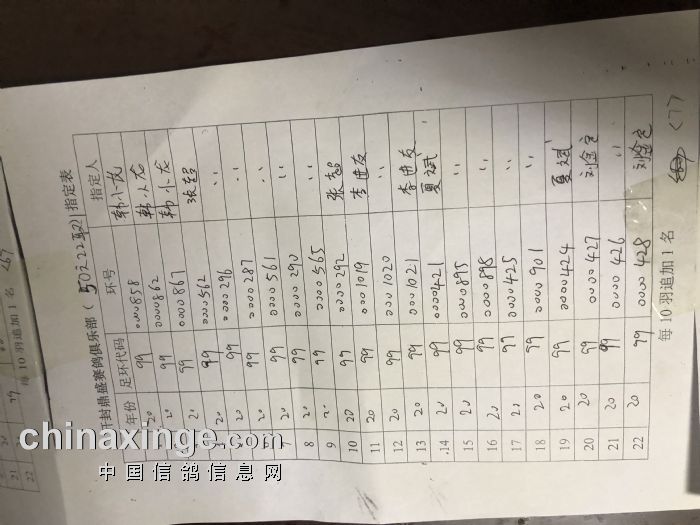 开封鼎盛赛鸽俱乐部( 指定表
年份 足环代码 环号 指定人
20 99 0000858 韩小龙
20 99 0000862 韩小龙
20 99 0000867 韩小龙
20 99 0000562 张超
20 99 0000296 〃
20 99 0000287 〃
20 99 0000561 〃
7 20 99 0000290 〃
8 20 99 0000565 〃
9 20 99 0000292 张超
10 20 99 0001019 李进友
11 20 99 0001020 〃
12 20 99 0001021 李进友
13 20 99 0000421 夏斌
14 20 99 0000895 〃
15 20 99 0000898 〃
16 20 99 0000425 〃
17 20 99 0000901 〃
18 20 99 0000424 夏斌
19 20 99 0000427 刘金定
20 20 99 0000426 〃
21 20 99 0000428 刘金定
22 20 99
每 10 羽追加 1 名 (7)
每 10 羽追加 1 名
21 20
22
chinaxinge.com
中国信鸽信息网